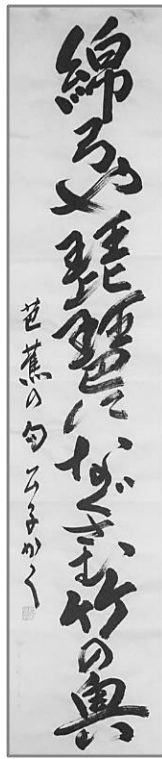 綿弓や琵琶になぐさむ竹の奥
芭蕉の句 公子かく